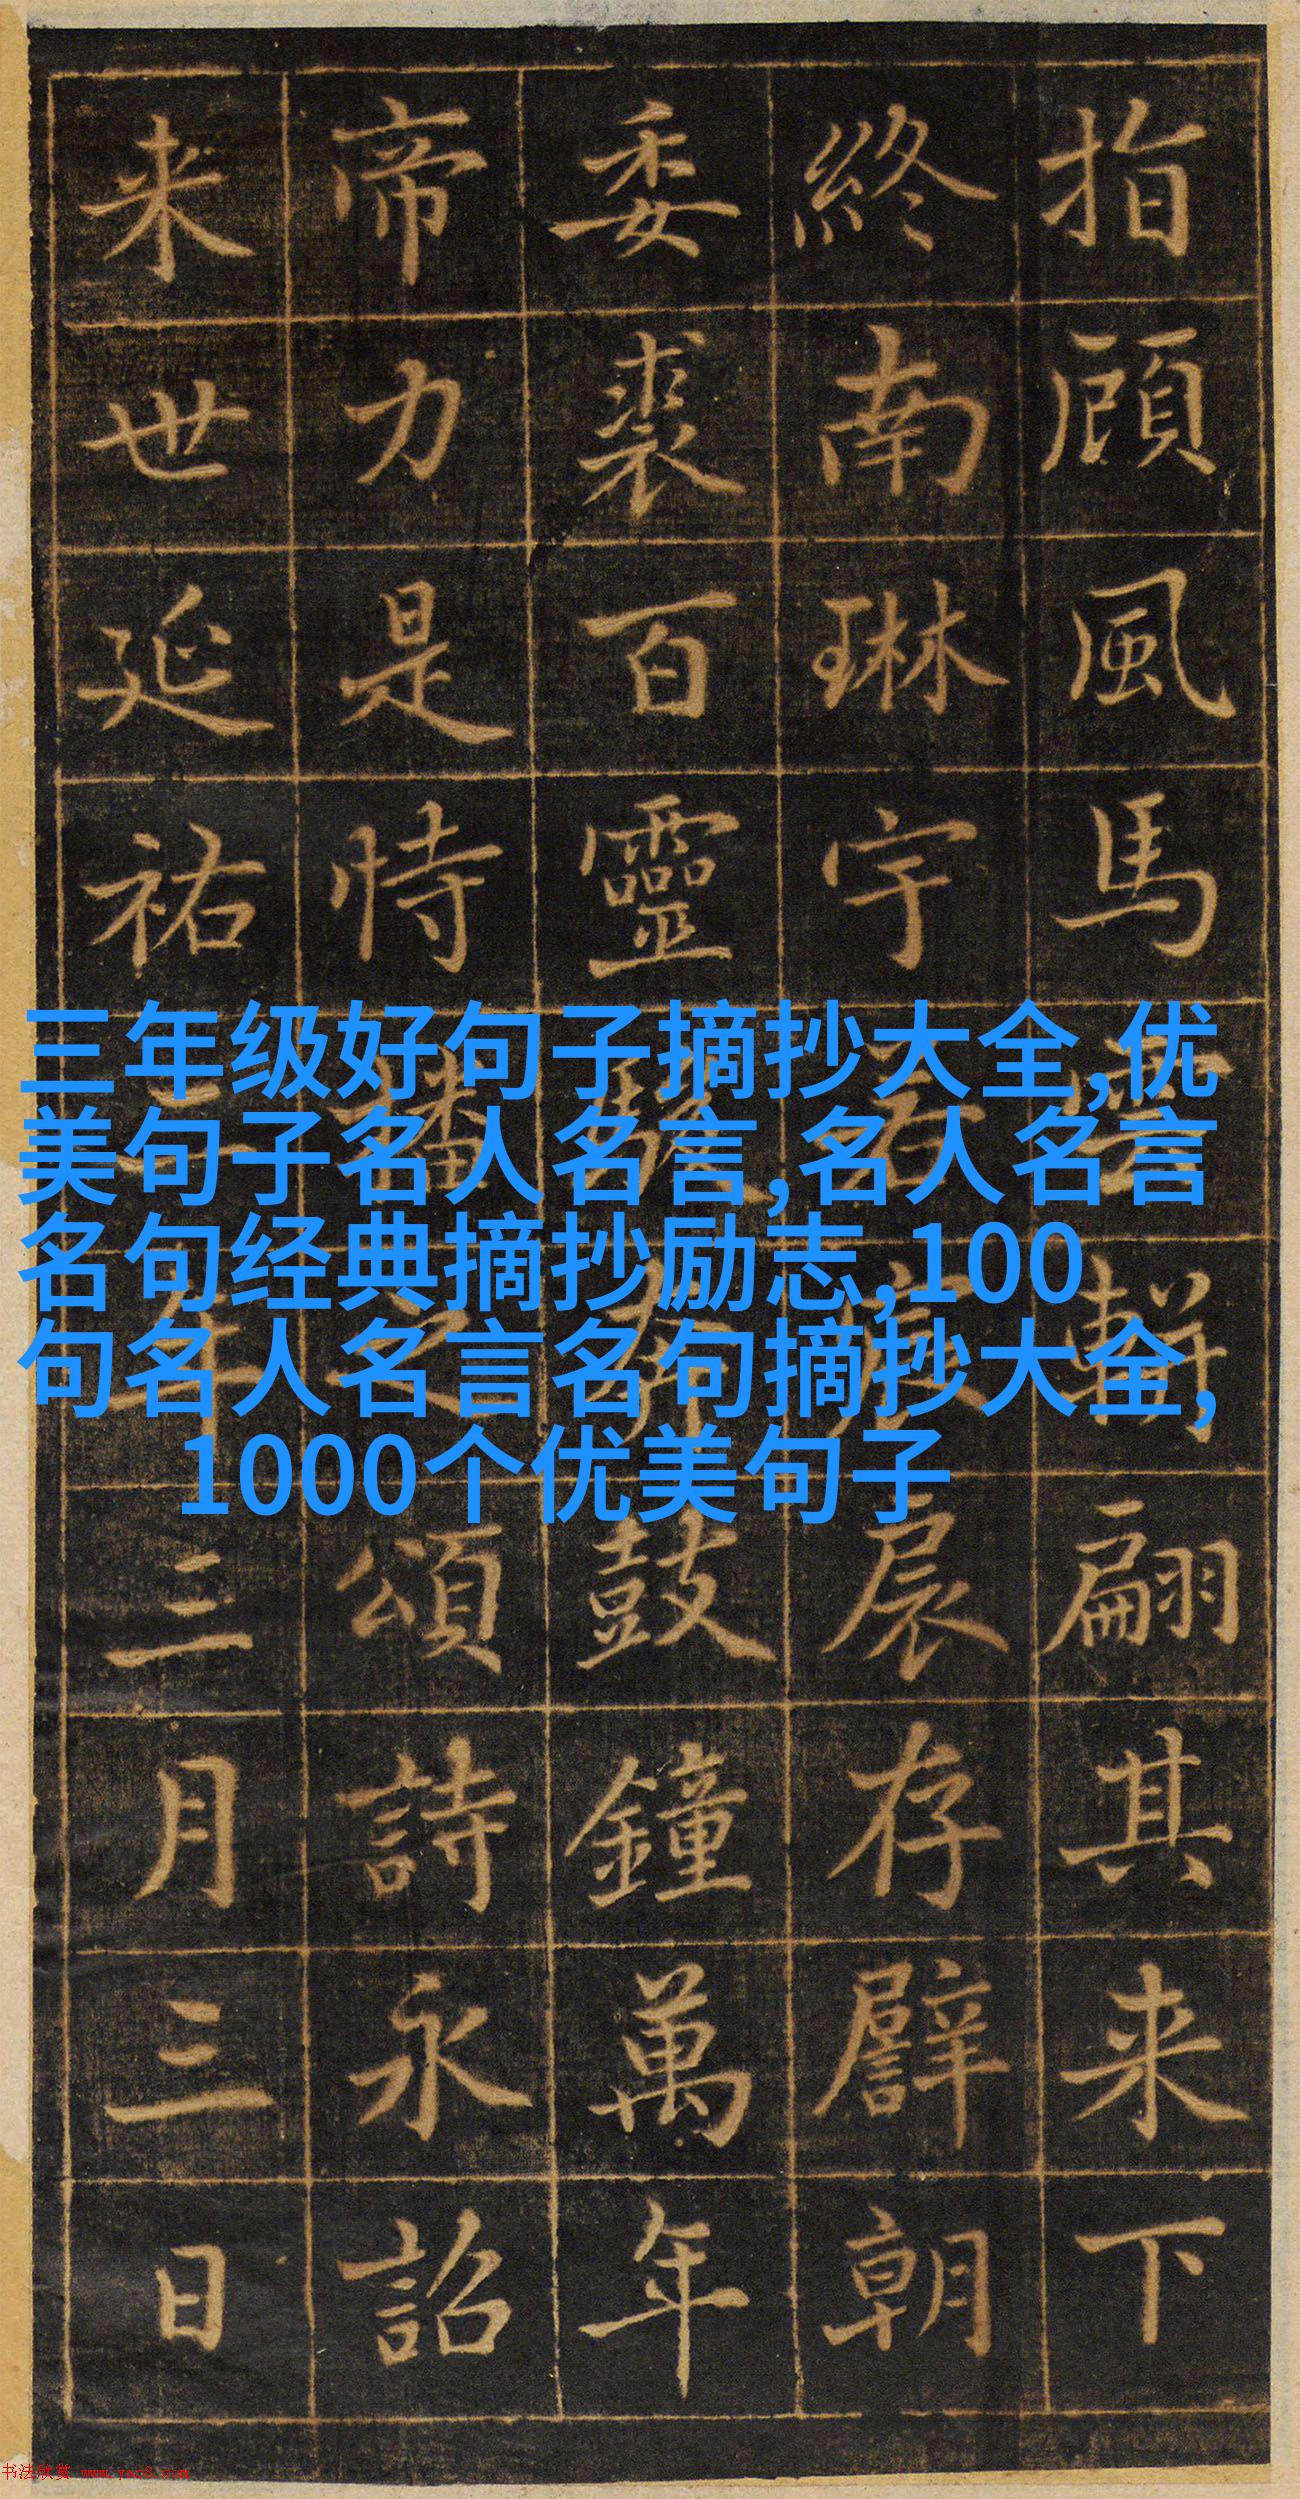 指顧風馬軿翩其来下
終南琳宇存譬朝
委裘百靈鼓鐘萬年
帝力是恃播之頌詩永詔
来世延祐三年三月三日
三年级好句子摘抄大全,优
美句子名人名言,名人名言
名句经典摘抄励志,100
句名人名言名句摘抄大全,
1000个优美句子
书法欣赏 www.yac8.com